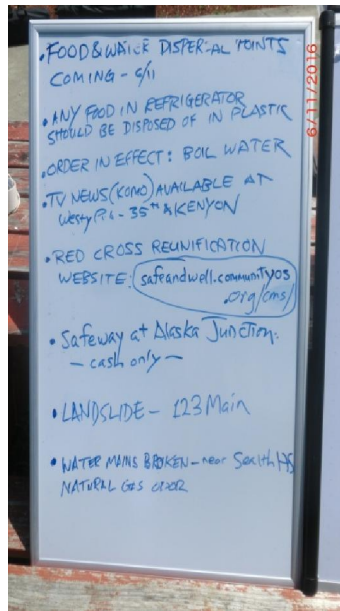 • FOOD & WATER DISPERSAL POINTS
COMING - 6/11
• ANY FOOD IN REFRIGERATOR
SHOULD BE DISPOSED OF IN PLASTIC
• ORDER IN EFFECT: BOIL WATER
• TV NEWS (KOMO) AVAILABLE AT
35th & KENYON
• RED CROSS REUNIFICATION
WEBSITE: safeandwell.communityos
.org/cms/
• Safeway at Alaska Junction.
- cash only -
• LANDSLIDE - 123 Main
• WATER MAINS BROKEN - near Sealth HS
NATURAL GAS ODOR
6/11/2016